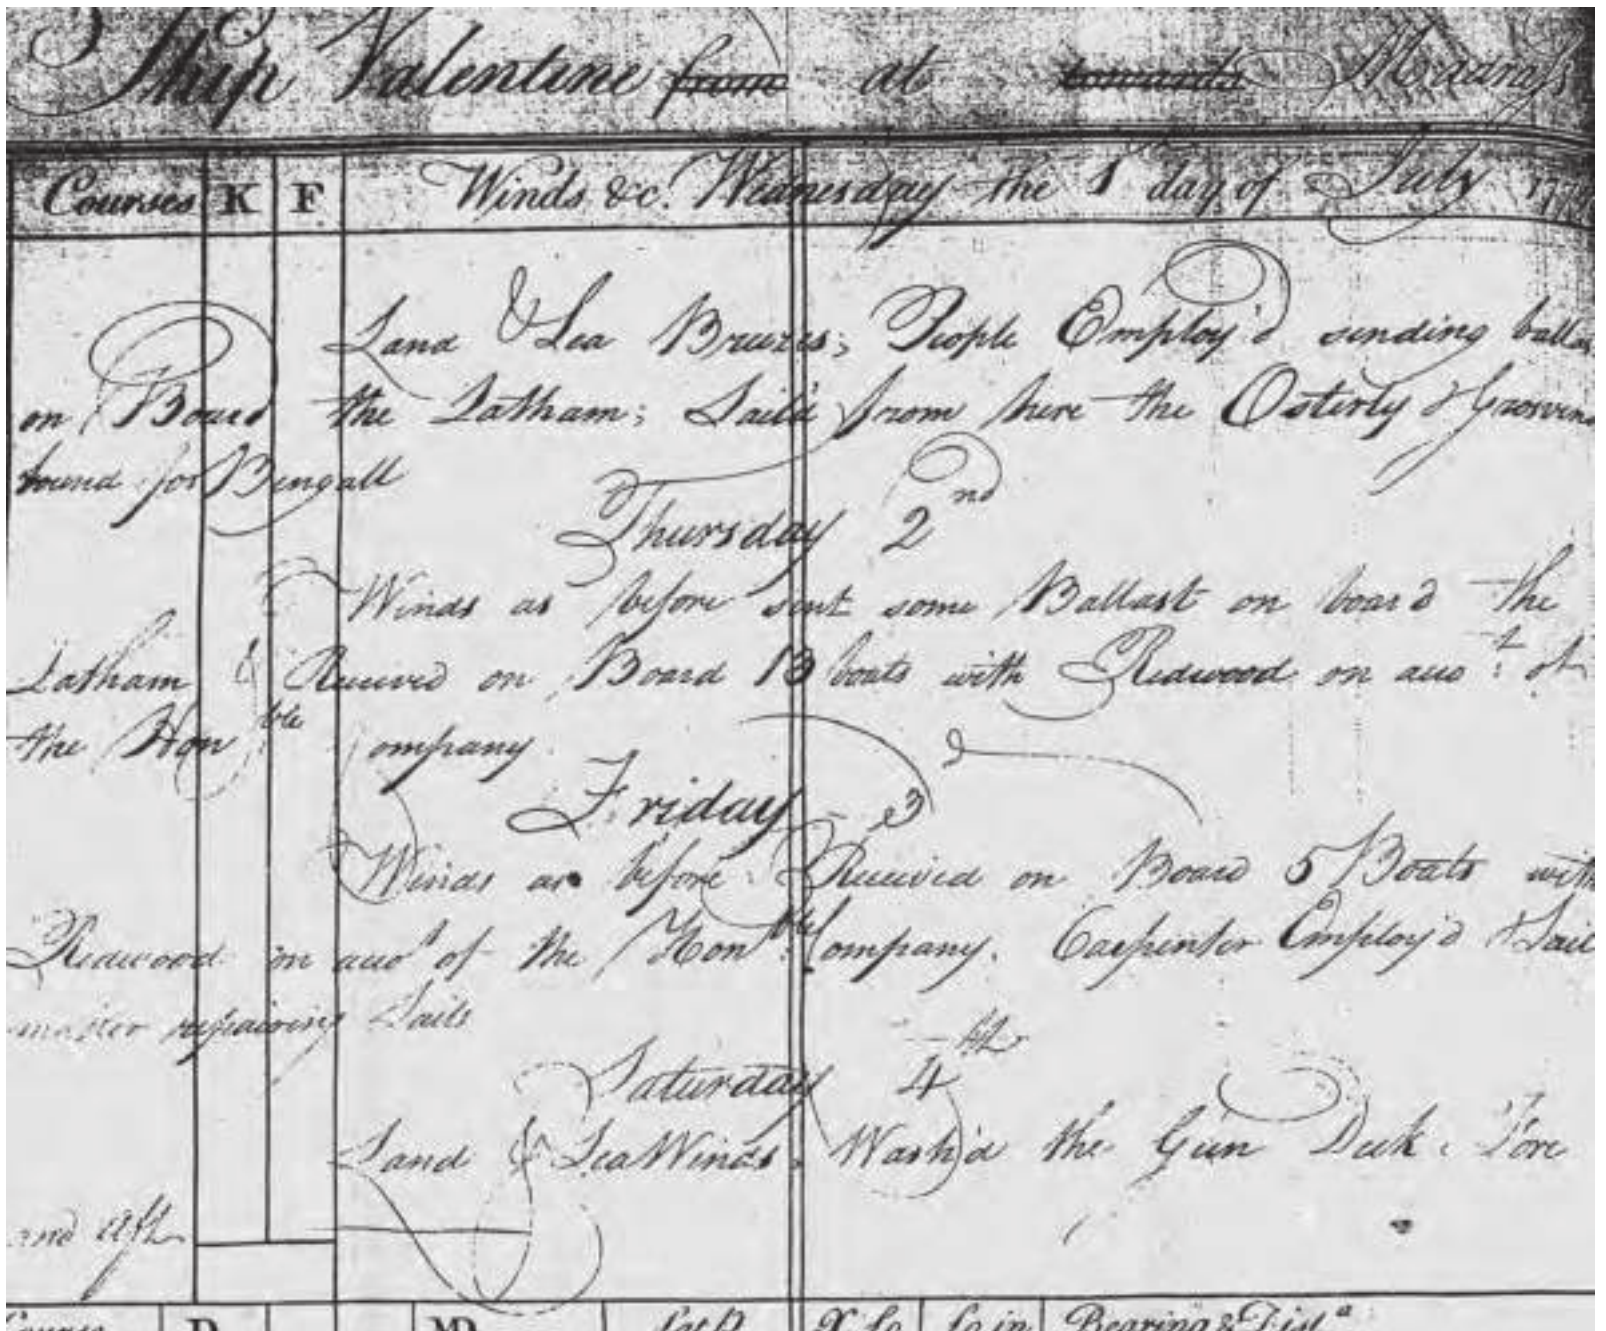 Ship Valentine from at towards Madrass
Courses K F Winds &c. Wednesday the 1 day of July 177
Land & Sea Breezes; People Employ'd sending ballas
on Board the Latham; Sail'd from here the Osterly & Grosven
bound for Bengall
Thursday 2nd
Winds as before sent some Ballast on board the
Latham & Received on Board 13 boats with Redwood on acco:t of
the Honble Company
Friday 3
Winds as before. Received on Board 5 Boats with
Redwood on accot of the Honble Company. Carpenter Employ'd & Sail
master repairing Sails
Saturday 4th
Land & Sea Winds. Wash'd the Gun Deck. Fore
and Aft
Courses D MD Lat D Bearing & Dista